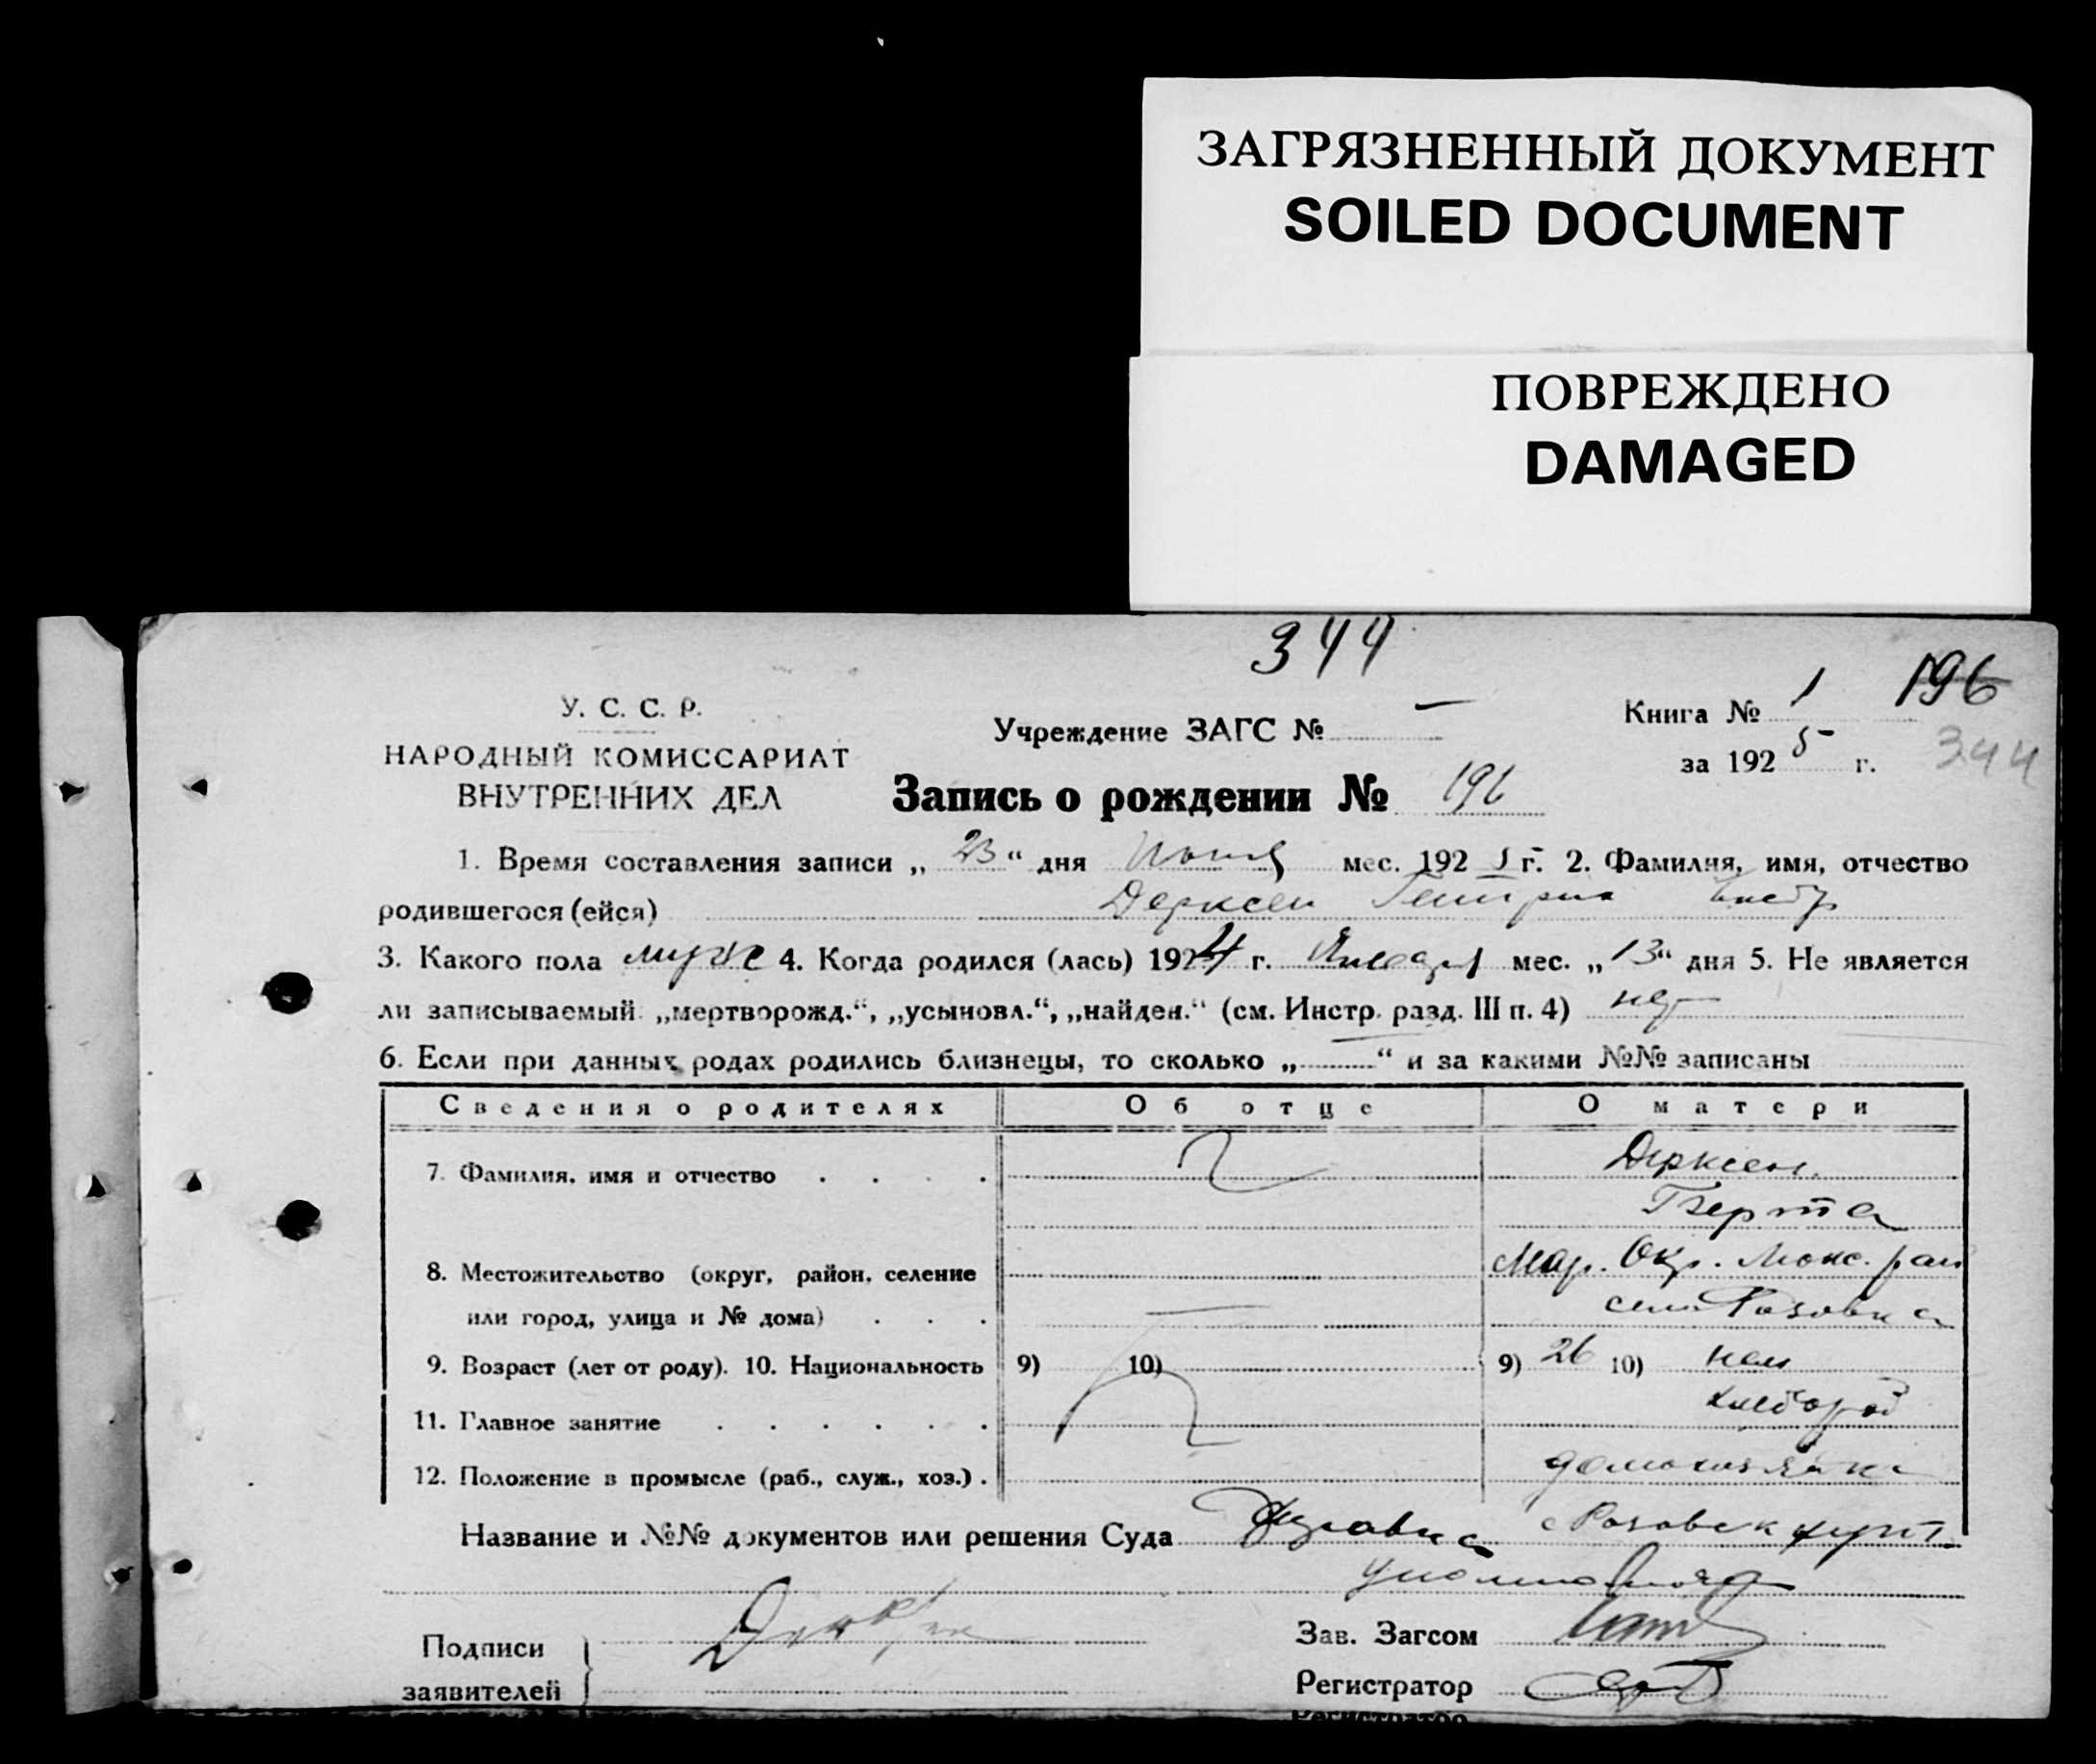 ЗАГРЯЗНЕННЫЙ ДОКУМЕНТ
SOILED DOCUMENT
ПОВРЕЖДЕНО
DAMAGED
344
У. С. С. Р.
НАРОДНЫЙ КОМИССАРИАТ
ВНУТРЕННИХ ДЕЛ
Учреждение ЗАГС № —
Книга № 1 196
за 1925 г. 344
Запись о рождении № 196
1. Время составления записи „23“ дня мес. 1925 г. 2. Фамилия, имя, отчество
родившегося (ейся) Дерксен
3. Какого пола муж 4. Когда родился (лась) 1924 г. мес. „13“ дня 5. Не является
ли записываемый „мертворожд.“, „усыновл.“, „найден.“ (см. Инстр. разд. III п. 4) нет
6. Если при данных родах родились близнецы, то сколько „—“ и за какими №№ записаны
Сведения о родителях Об отце О матери
7. Фамилия, имя и отчество . . . . Дерксен
Берта
8. Местожительство (округ, район, селение Мар. Окр. Люкс. рай
или город, улица и № дома) . . . село Розовка
9. Возраст (лет от роду). 10. Национальность 9) 10) 9) 26 10) нем
11. Главное занятие . . . . . . хлебороб
12. Положение в промысле (раб., служ., хоз.) . домохозяйка
Название и №№ документов или решения Суда Справка с Розовск
Подписи
заявителей
Зав. Загсом
Регистратор
Регистратор